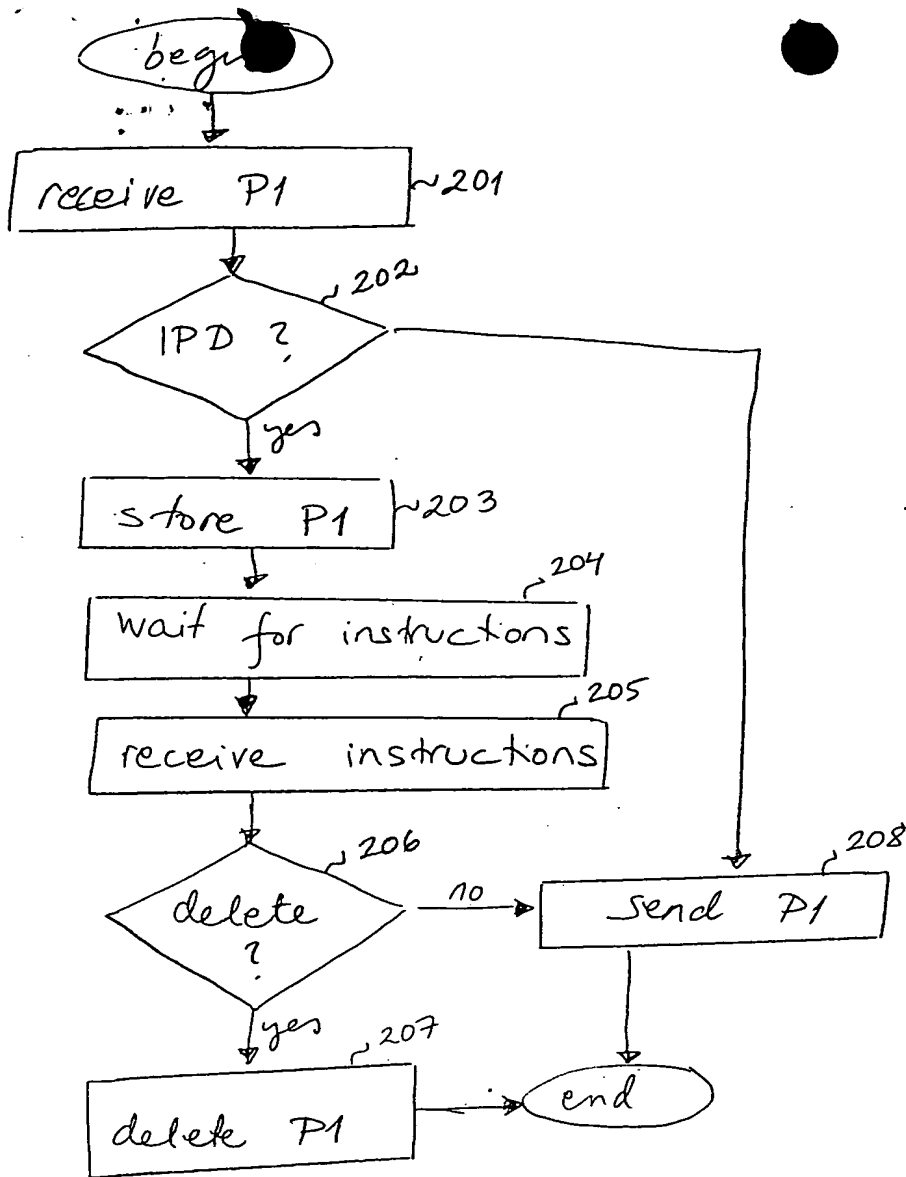 receive P1
201
202
IPD ?
yes
store P1
203
204
wait for instructions
205
receive instructions
206
delete
?
no
208
send P1
yes
207
delete P1
end